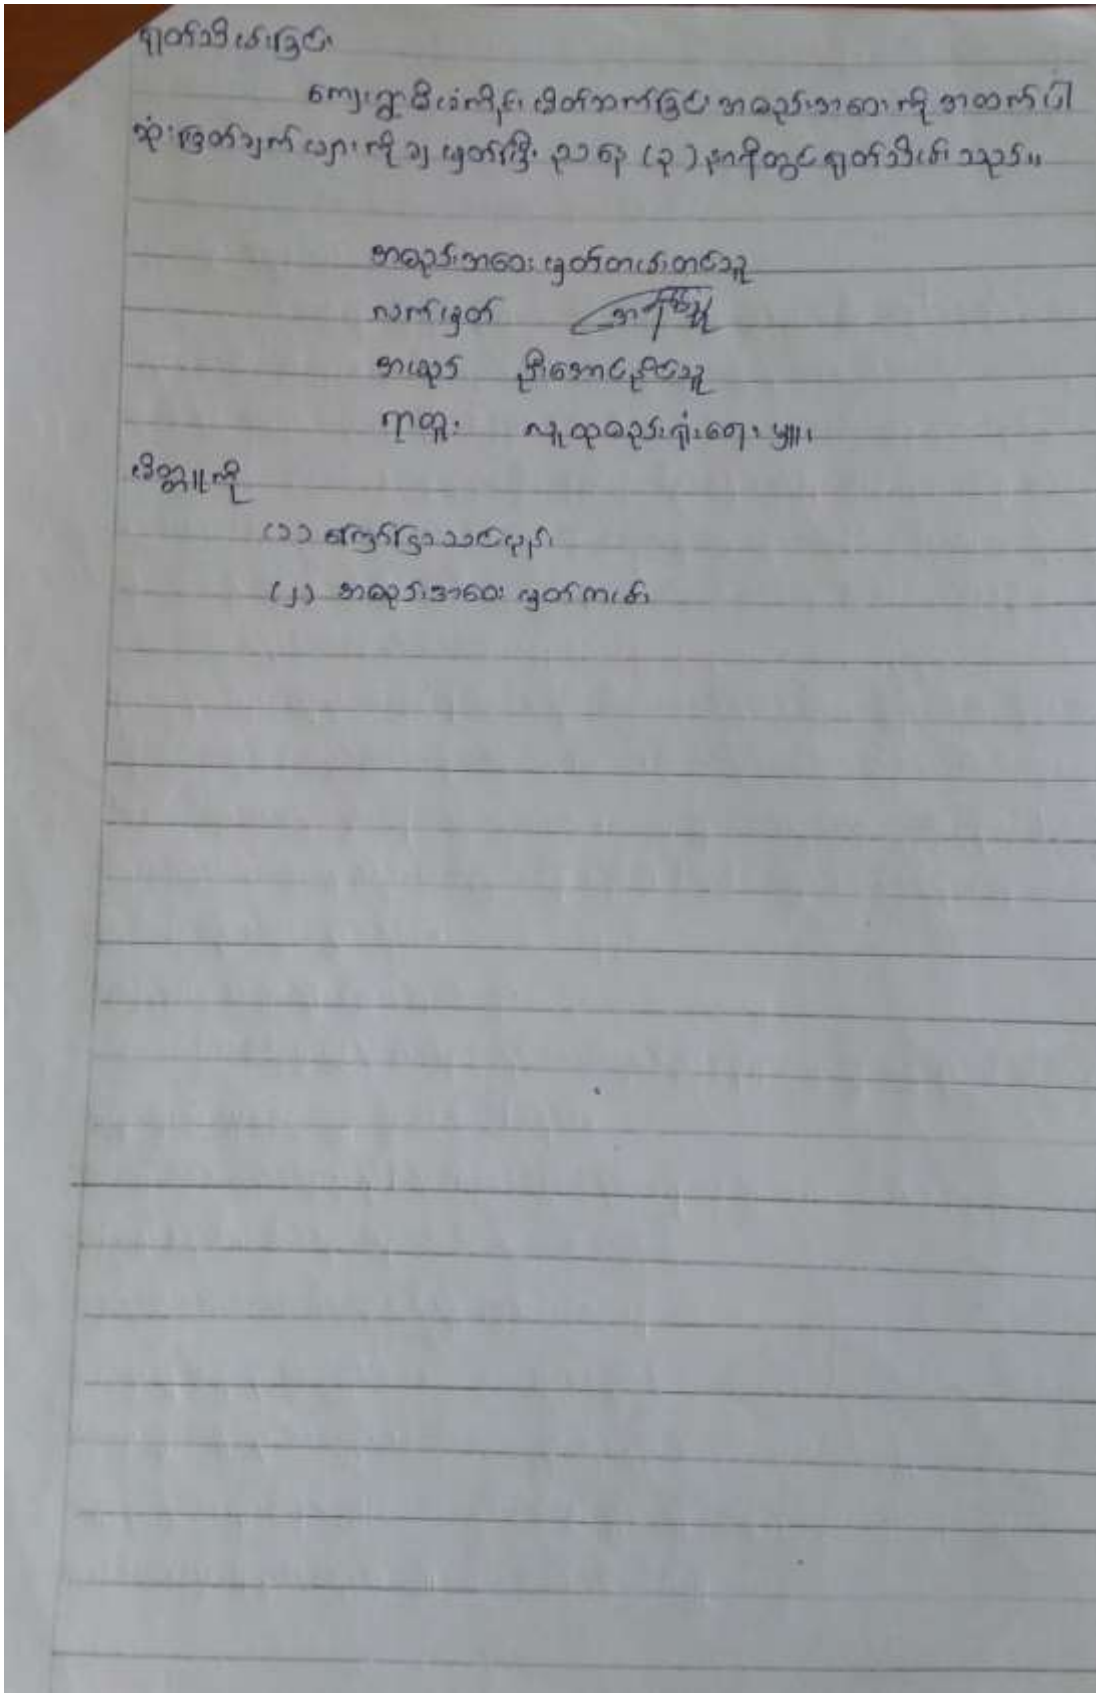 ရုတ်သိမ်းခြင်း
ကျေးရွာမီးခံကိုင်း ဖိတ်ဘက်ခြင်း အစည်းအဝေးကို အထက်ပါ
ဆုံးဖြတ်ချက်များကို ချမှတ်ပြီး ညနေ (၃) နာရီတွင် ရုတ်သိမ်းသည်။
အစည်းအဝေး မှတ်တမ်းတင်သူ
လက်မှတ်
အမည် ဦးအောင်နိုင်သူ
ရာထူး လူထုစည်းရုံးရေးမှူး
မိတ္တူကို
(၁) ကြော်ငြာသင်ပုန်း
(၂) အစည်းအဝေး မှတ်တမ်း